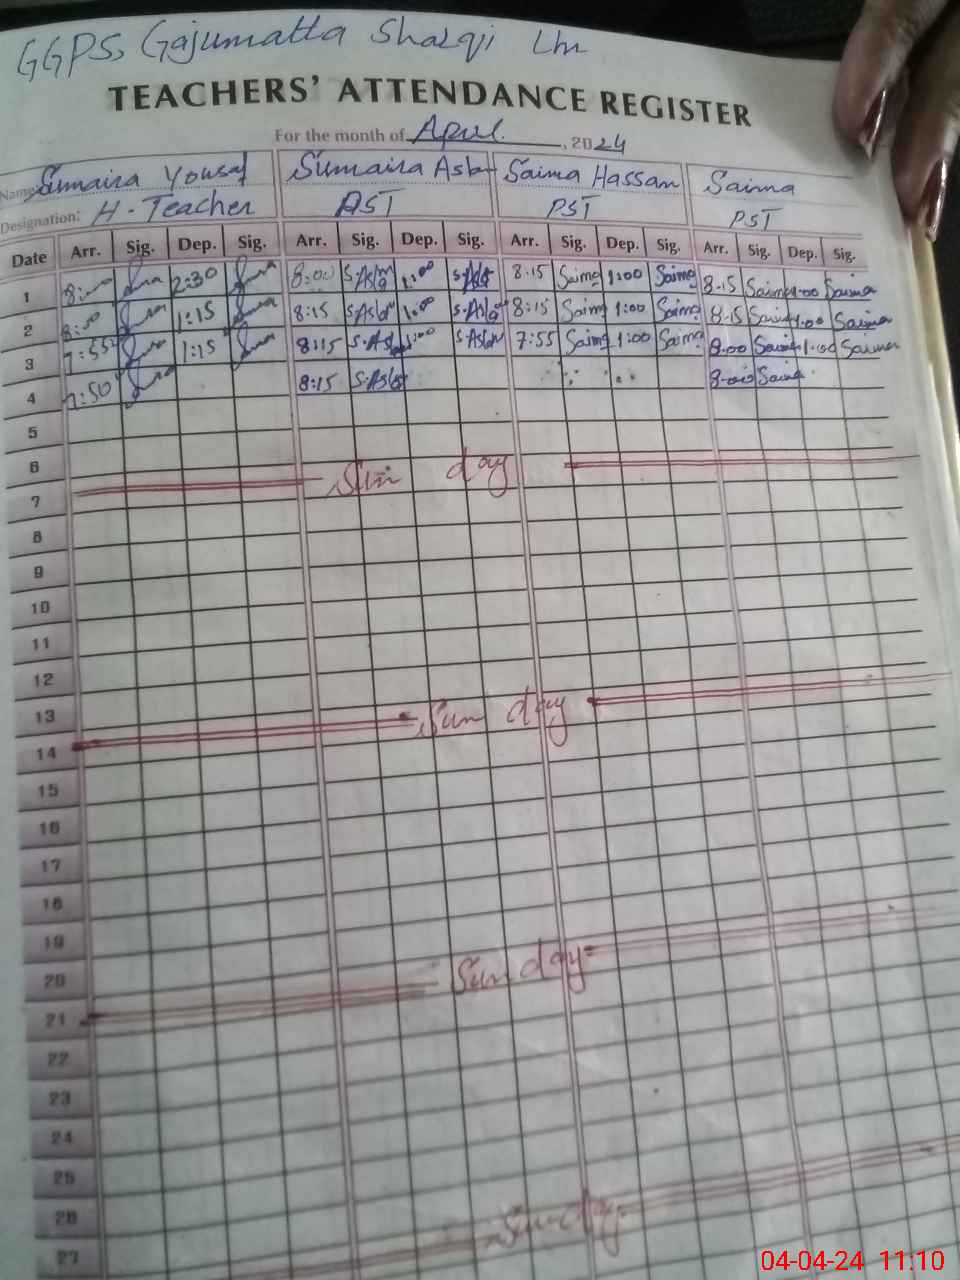 GGPS, Gajumatta Sharqi Lhr
TEACHERS' ATTENDANCE REGISTER
For the month of April. , 2024
Name Sumaira Yousaf Sumaira Aslam Saima Hassan Saima
Designation: H-Teacher PST PST PST
Date Arr. Sig. Dep. Sig. Arr. Sig. Dep. Sig. Arr. Sig. Dep. Sig. Arr. Sig. Dep. Sig.
1 8:00 2:30 8:00 S.Aslam 1:00 S.Aslam 8:15 Saima 1:00 Saima 8.15 Saima 1.00 Saima
2 8:00 1:15 8:15 S.Aslam 1:00 S.Aslam 8:15 Saima 1:00 Saima 8.15 Saima 1.00 Saima
3 7:55 1:15 8:15 S.Aslam 1:00 S.Aslam 7:55 Saima 1:00 Saima 8.00 Saima 1.00 Saima
4 7:50 8:15 S.Aslam 8.00 Saima
5
6
7 Sun day
8
9
10
11
12
13
14 Sun day
15
16
17
18
19
20
21 Sunday
22
23
24
25
26
27
Sunday
04-04-24 11:10